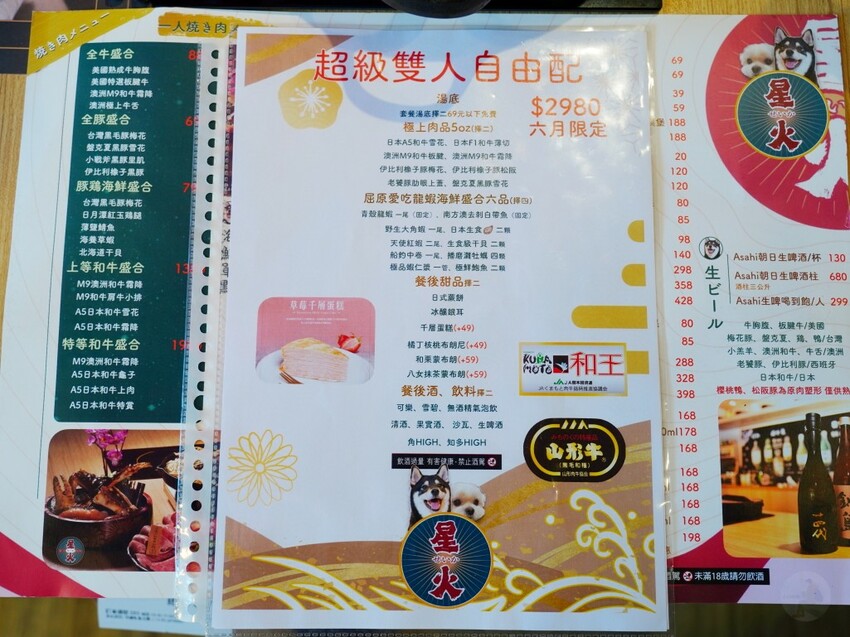 焼き肉メニュー
全牛盛合
美國熟成牛胸腹
美國特選板腱牛
澳洲M9和牛霜降
澳洲極上牛舌
全豚盛合
台灣黑毛豚梅花
盤克夏黑豚雪花
小戰斧黑豚里肌
伊比利橡子黑豚
豚鶏海鮮盛合
台灣黑毛豚梅花
日月潭紅玉鶏腿
薄鹽鯖魚
海養草蝦
北海道干貝
上等和牛盛合
M9澳洲和牛霜降
M9和牛肩牛小排
A5日本和牛雪花
A5日本和牛霜降
特等和牛盛合
M9澳洲和牛霜降
A5日本和牛龜子
A5日本和牛上肉
A5日本和牛特賞
星火
一人焼き肉
超級雙人自由配
$2980
六月限定
湯底
套餐湯底擇二69元以下免費
極上肉品5oz(擇二)
日本A5和牛雪花、日本F1和牛薄切
澳洲M9和牛板腱、澳洲M9和牛霜降
伊比利橡子豚梅花、伊比利橡子豚松阪
老饕豚肋眼上蓋、盤克夏黑豚雪花
屈原愛吃龍蝦海鮮盛合六品(擇四)
青殼龍蝦 一尾（固定）、南方澳去刺白帶魚（固定）
野生大角蝦 一尾、日本生食 二顆
天使紅蝦 二尾、生食級干貝 二顆
船釣中卷 一尾、播磨灘牡蠣 四顆
極品蝦仁漿 一管、極鮮鮑魚 二顆
餐後甜品擇二
日式蕨餅
冰釀銀耳
千層蛋糕(+49)
橘丁核桃布朗尼(+49)
和栗蒙布朗(+59)
八女抹茶蒙布朗(+59)
餐後酒、飲料擇二
可樂、雪碧、無酒精氣泡飲
清酒、果實酒、沙瓦、生啤酒
角HIGH、知多HIGH
飲酒過量 有害健康·禁止酒駕
草莓千層蛋糕
KUMAMOTO
和王
JA熊本経済連
山形牛
(黒毛和種)
星火
せいか
69
39
59
188
188
20
120
120
85
98
140
298
358
428
80
85
328
398
168
168
168
168
168
168
198
星火
せいか
生ビール
Asahi朝日生啤酒/杯 130
Asahi朝日生啤酒柱 680
酒柱三公升
Asahi生啤喝到飽/人 299
牛胸腹、板腱牛/美國
梅花豚、盤克夏、鶏、鴨/台灣
小羔羊、澳洲和牛、牛舌/澳洲
老饕豚、伊比利豚/西班牙
日本和牛/日本
櫻桃鴨、松阪豚為原肉塑形 僅供熟
未滿18歲請勿飲酒